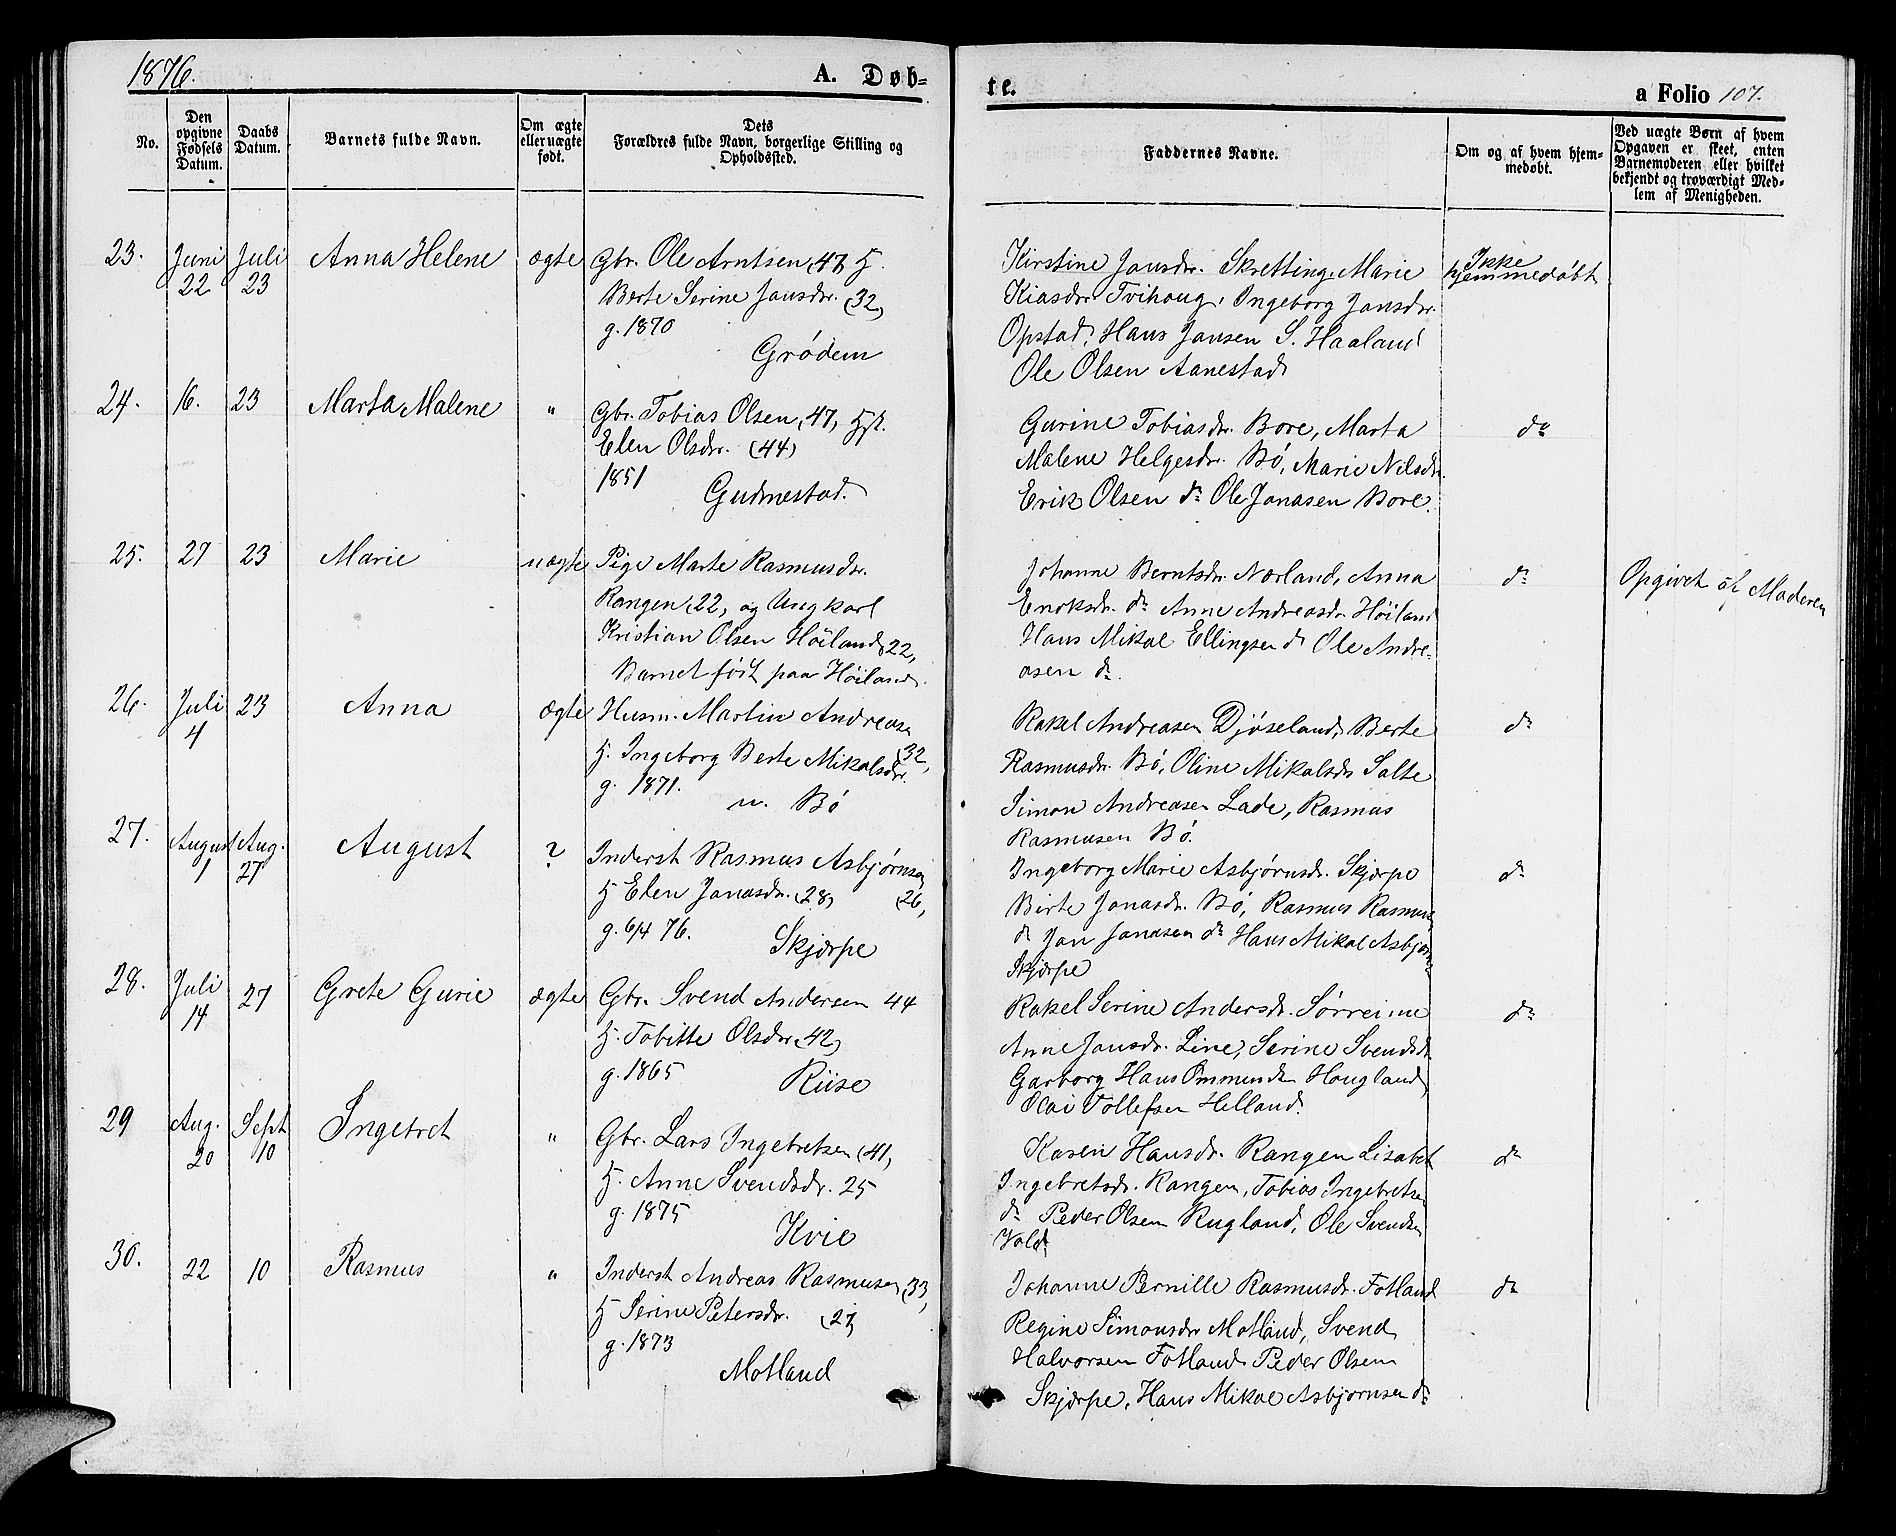 1876.
A. Døb-
No.
Den opgivne Fødsels Datum.
Daabs Datum.
Barnets fulde Navn.
Om ægte eller uægte født.
Dets Forældres fulde Navn, borgerlige Stilling og Opholdssted.
23. Juni 22 Juli 23 Anna Helene ægte Gbr. Ole Arntsen (47) H.
Berte Serine Jansdr. (32)
g. 1870
Grødem
24. 16. 23 Marta Malene " Gbr. Tobias Olsen (47)
Elen Olsdr. (44)
1851
Gudmestad.
25. 27 23 Marie uægte Pige Marte Rasmusdr.
Rangen (22) og Ungkarl
Kristian Olsen Høiland (22)
Barnet født paa Høiland.
26. Juli 4 23 Anna ægte Husm. Martin Andreasen
H. Ingeborg Berte Mikalsdr. (32)
g. 1871.
u. Bø
27. August 1 Aug. 27 August ? Inderst Rasmus Asbjørnsen
H Elen Jonasdr. (28) (26)
g. 6/4 76.
Skjærpe
28. Juli 14 27 Grete Gurie ægte Gbr. Svend Andersen 44
H. Tobitte Olsdr. (42)
g. 1865
Riise
29 Aug. 20 Sept 10 Ingebret " Gbr. Lars Ingebretsen (41)
H. Anne Svendsdr. 25
g. 1875
Kvie
30. 22 10 Rasmus " Inderst Andreas Rasmusen (33)
H Serine Petersdr. (27)
g. 1873
Motland
te.
a Folio 107.
Faddernes Navne.
Om og af hvem hjemmedøbt.
Ved uægte Børn af hvem
Opgaven er skeet, enten
Barnemoderen eller hvilket
bekjendt og troværdigt Med-
lem af Menigheden.
Kirstine Jansdr. Skretting, Marie Ikke hjemmedøbt
Kiasdr. Tvihoug, Ingeborg Jansdr.
Opstad, Hans Jansen S. Haaland
Ole Olsen Aanestad
Gurine Tobiasdr. Bore, Marta do
Malene Helgesdr. Bø, Marie Nilsdr.
Erik Olsen do Ole Jonasen Bore.
Johanne Berntsdr. Nærland, Anna do Opgivet af Moderen
Enoksdr. do Anne Andreasdr. Høiland
Hans Mikal Ellingsen do Ole Andre-
asen do
Rakel Andreasen Djøseland, Berte do
Rasmusdr. Bø, Oline Mikalsdr Salte
Simon Andreasen Lade, Rasmus
Rasmusen Bø.
Ingeborg Marie Asbjørnsdr. Skjærpe do
Birte Jonasdr. Bø, Rasmus Rasmusen
do Jan Jonasen do Hans Mikal Asbjørn
Skjærpe
Rakel Serine Andersdr. Sørreime do
Anne Jansdr. Line, Serine Svendsdr
Garborg Hans Hougland
Olai Tollefsen Helland.
Karen Hansdr. Rangen Lisabet do
Ingebretsdr. Rangen, Tobias Ingebretsen
do Peder Olsen Rugland, Ole Svendsen
Vold
Johanne Pernille Rasmusdr. Fotland do
Regine Simonsdr Motland, Svend
Halvorsen Fotland Peder Olsen
Skjærpe, Hans Mikal Asbjørnsen do